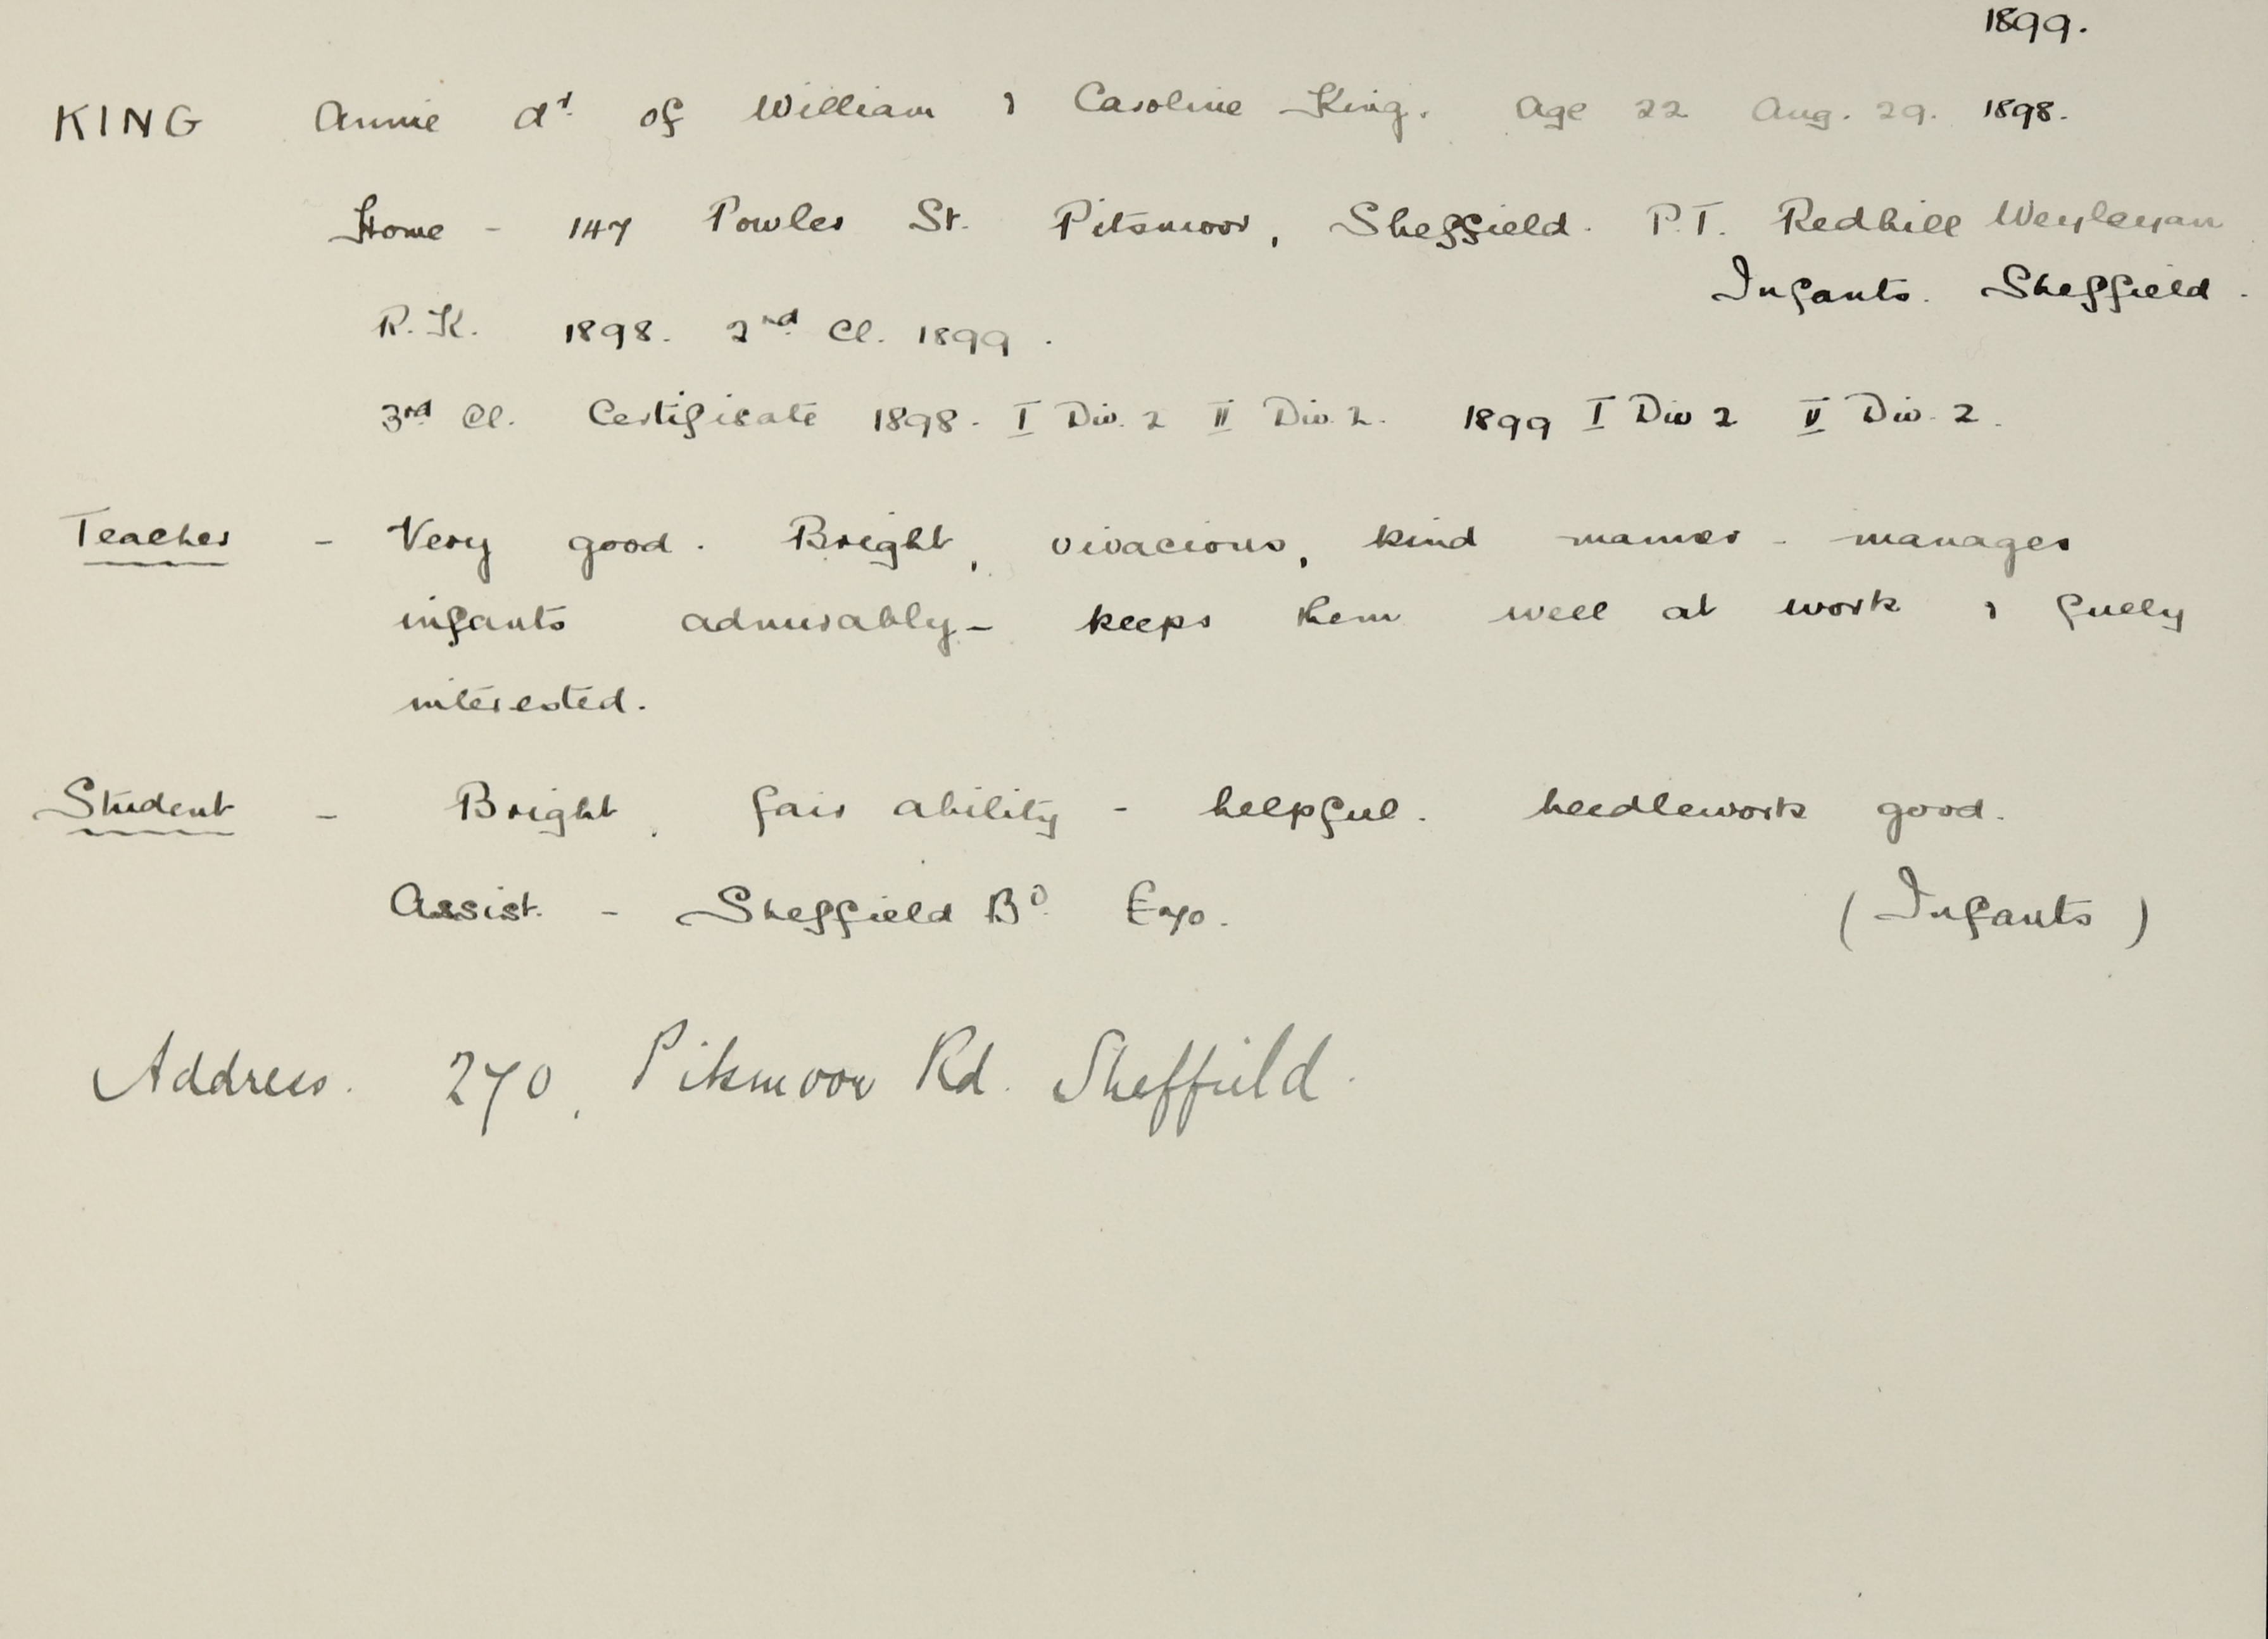 1899.
KING Annie dr. of William & Caroline King. Age 22 Aug. 29. 1898.
Home - 147 Fowler St. Pitsmoor, Sheffield. P.T. Redhill Wesleyan
Infants. Sheffield.
R.K. 1898. 2nd Cl. 1899.
3rd Cl. Certificate 1898. I Div. 2 II Div. 2. 1899 I Div 2 II Div. 2.
Teacher - Very good. Bright, vivacious, kind manner - manages
infants admirably - keeps them well at work & fully
interested.
Student - Bright, fair ability - helpful. Needlework good.
Assist. - Sheffield Bd. £70. (Infants)
Address. 270, Pitsmoor Rd. Sheffield.